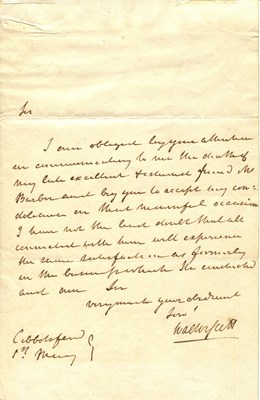 Sir
I am obliged by your attention
in communicating to me the death of
my late excellent & esteemed friend Mr
Barber and beg you to accept my con-
dolence on that mournful occasion
I have not the least doubt that all
connected with him will experience
the same satisfaction as formerly
in the business which he conducted
and am Sir
very much your obedient
Servt
Walter Scott
Abbotsford
1st May